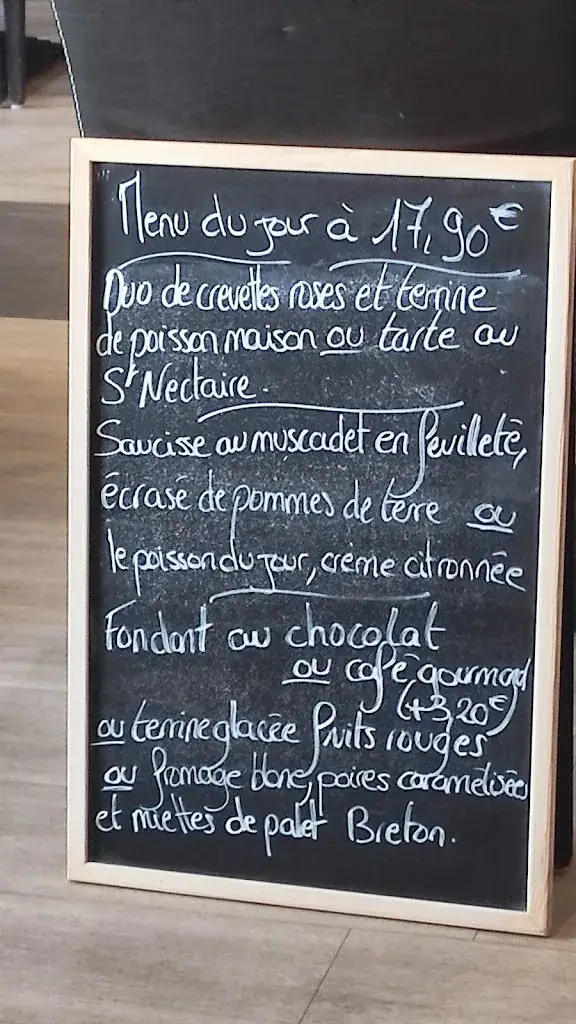 Menu du jour à 17,90€
Duo de crevettes roses et terrine
de poisson maison ou tarte au
St Nectaire.
Saucisse au muscadet en feuilleté,
écrasé de pommes de terre ou
le poisson du jour, crème citronnée
Fondant au chocolat
ou café gourmand
(+3,20€)
ou terrine glacée fruits rouges
ou fromage blanc, poires caramélisées
et miettes de palet Breton.